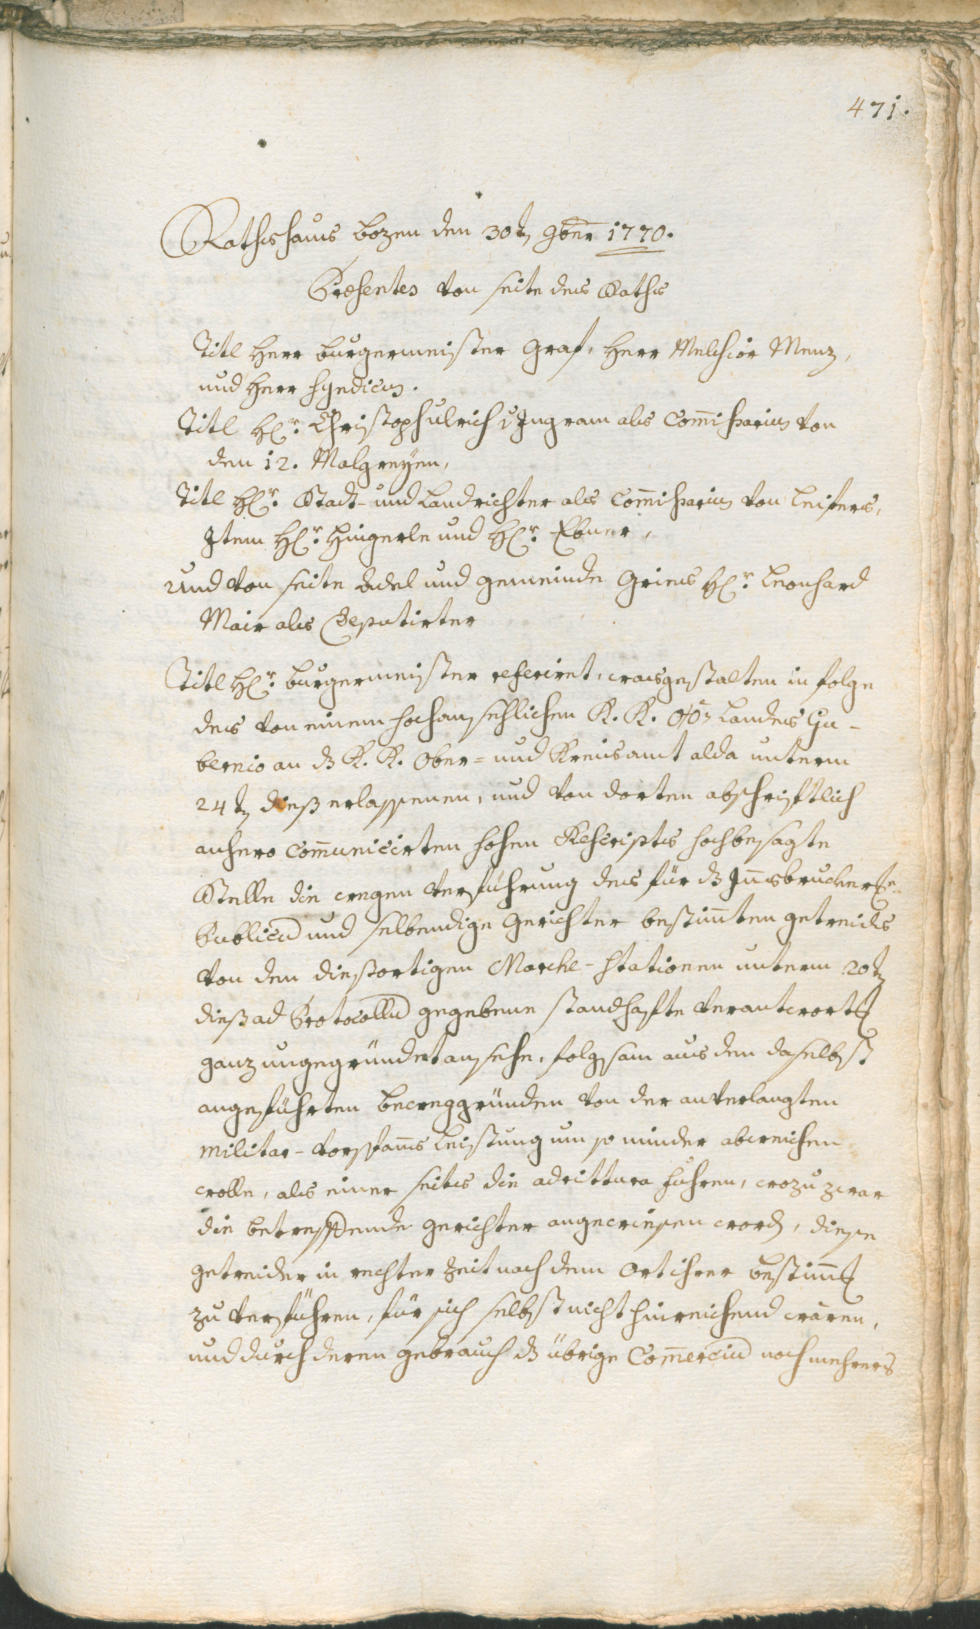 471.
Rathshaus Bozen den 30t 9ber 1770.
Præsentes von seite des Raths
Titl Herr burgermeister Graf, Herr Melchior Menz,
und Herr Syndicus.
Titl H: Christoph Ulrich v Ingram als Commissarius von
den 12. Malgreyen,
Titl H: Stadt- und Landrichter als Commissarius von Leifers,
Item H: Hingerle und H: Ebner,
Und von seite Adel und gemeinde Gries H: Leonhard
Mair als Deputirter
Titl H: burgermeister referirt, wasgestalten in folge
des von einem hochansehlichen K. K. OÖ Landes Gu-
bernio an dß K. K. Ober- und Kreisamt alda unterm
24t dieß erlassenen, und von dorten abschriftlich
anhero communicirten hohen Rescripts hochbesagte
Stelle die wegen verführung des für dß Innsbrucker
Publicum und selbendige Gerichter bestimten getreides
von den diessortigen March-Stationen unterm 20t
dieß ad Protocollum gegebene standhafte verantwort
ganz ungegründet ansehe, folgsam aus den daselbst
angeführten beweggründen von der anverlangten
Militar-vorspans Leistung um so minder abweichen
wolle, als einer seits die adrittura fuhren, wozu zwar
die betreffende gerichter angewiesen word, diese
getreider in rechter zeit nach dem ort ihrer bestim
zu verführen, für sich selbst nicht hinreichend wären,
und durch deren gebrauch dß übrige Commercium noch mehrers